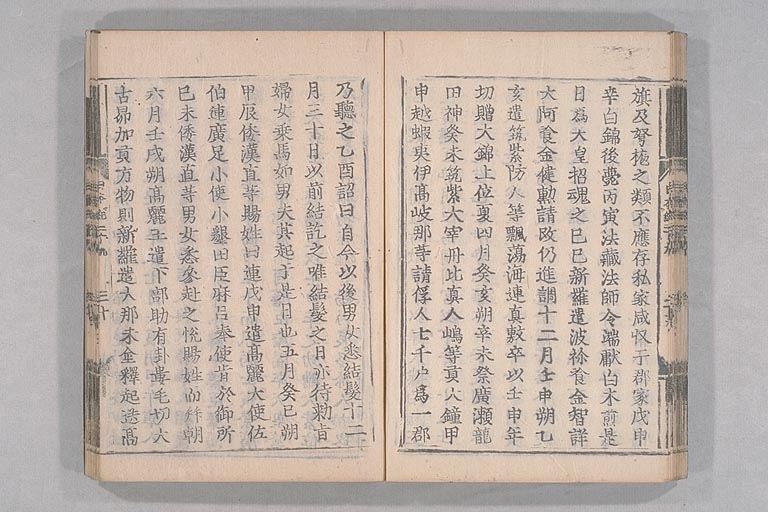 旗及弩抛之類不應存私家咸収于郡家戊申
幸白錦後菀丙寅法藏法師金鐘獻白朮煎是
日爲天皇招魂之已巳新羅遣波珍飡金智詳
大阿飡金健勲請政仍進調十二月壬申朔乙
亥遣筑紫防人等飄蕩海連真敷卒以壬申年
切贈大錦上位夏四月癸亥朔辛未祭廣瀬龍
田神癸未筑紫大宰丹比真人嶋等貢大鐘甲
申越蝦夷伊高岐那等請俘人七千户爲一郡
乃聽之乙酉詔曰自今以後男女悉結髮十二
月三十日以前結訖之唯結髮之日亦待勅旨
婦女乗馬如男夫其起于是日也五月癸巳朔
甲辰倭漢直等賜姓曰連戊申遣高麗大使佐
伯連廣足小使小墾田臣麻呂奉使旨於御所
已未倭漢直等男女悉參赴之悦賜姓而拜朝
六月壬戌朔高麗王遣下部助有卦婁毛切大
古昴加貢方物則新羅遣大那末金釋起送高